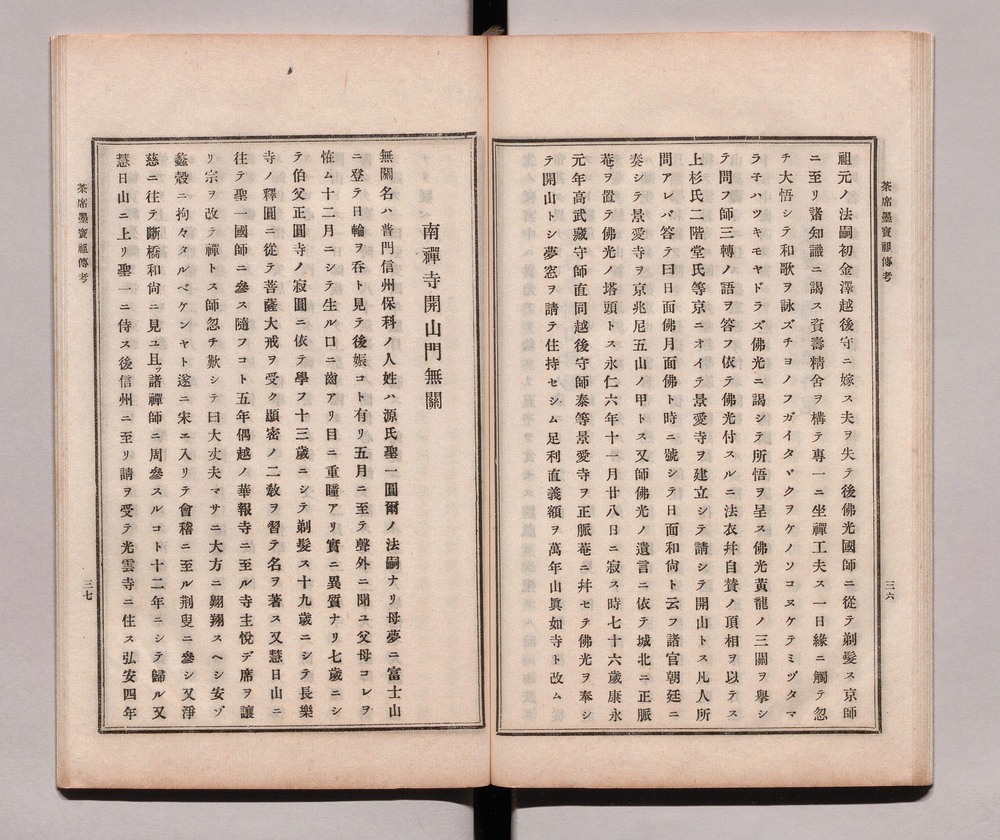 茶席墨寶祖傳考
三六
祖元ノ法嗣初金澤越後守ニ嫁ス夫ヲ失テ後佛光國師ニ從テ剃髮ス京師
ニ至リ諸知識ニ謁ス資壽精舍ヲ構テ專一ニ坐禪工夫ス一日緣ニ觸テ忽
チ大悟シテ和歌ヲ詠ズチヨノフガイタヾクヲケノソコヌケテミヅタマ
ラネハツキモヤドラズ佛光ニ謁シテ所悟ヲ呈ス佛光黃龍ノ三關ヲ擧シ
テ問フ師三轉ノ語ヲ答フ依テ佛光付スルニ法衣幷自贊ノ頂相ヲ以テス
上杉氏二階堂氏等京ニオイテ景愛寺ヲ建立シテ請シテ開山トス凡人所
問アレバ答テ曰日面佛月面佛ト時ニ號シテ日面和尙ト云フ諸官朝廷ニ
奏シテ景愛寺ヲ京兆尼五山ノ甲トス又師佛光ノ遺言ニ依テ城北ニ正脈
菴ヲ置テ佛光ノ塔頭トス永仁六年十一月廿八日ニ寂ス時七十六歲康永
元年高武藏守師直同越後守師泰等景愛寺ヲ正脈菴ニ幷セテ佛光ヲ奉シ
テ開山トシ夢窓ヲ請テ住持セシム足利直義額ヲ萬年山眞如寺ト改ム
南禪寺開山門無關
無關名ハ普門信州保科ノ人姓ハ源氏聖一圓爾ノ法嗣ナリ母夢ニ富士山
ニ登テ日輪ヲ呑ト見テ後娠コト有リ五月ニ至テ聲外ニ聞ユ父母コレヲ
恠ム十二月ニシテ生ル口ニ齒アリ目ニ重瞳アリ實ニ異質ナリ七歲ニシ
テ伯父正圓寺ノ寂圓ニ依テ學フ十三歲ニシテ剃髮ス十九歲ニシテ長樂
寺ノ釋圓ニ從テ菩薩大戒ヲ受ク顯密ノ二敎ヲ習テ名ヲ著ス又慧日山ニ
往テ聖一國師ニ參ス隨フコト五年偶越ノ華報寺ニ至ル寺主悅デ席ヲ讓
リ宗ヲ改テ禪トス師忽チ歎シテ曰大丈夫マサニ大方ニ翺翔スヘシ安ゾ
蠡殼ニ拘々タルベケンヤト遂ニ宋エ入リテ會稽ニ至ル荆叟ニ參シ又淨
慈ニ往テ斷橋和尙ニ見ユ且ッ諸禪師ニ周參スルコト十二年ニシテ歸ル又
慧日山ニ上リ聖一ニ侍ス後信州ニ至リ請ヲ受テ光雲寺ニ住ス弘安四年
茶席墨寶祖傳考
三七